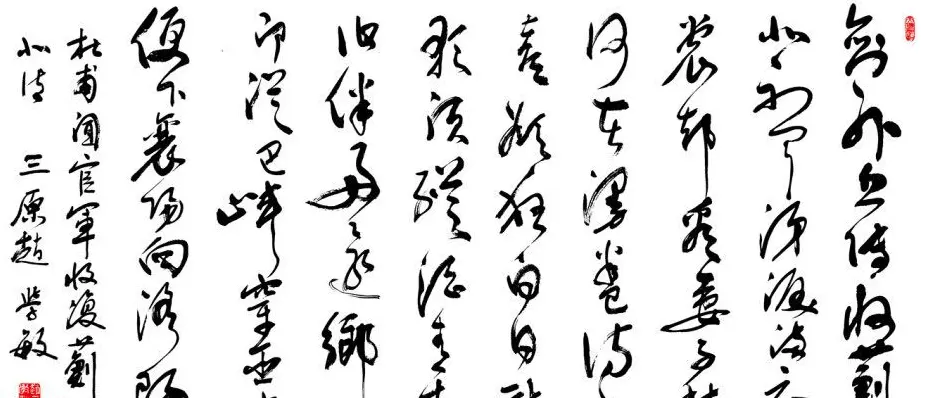 劍外忽傳收薊
北初聞涕淚滿衣
裳却看妻子愁
何在漫卷詩
喜欲狂白日放
歌須縱酒青春
作伴好還鄉
即從巴峽穿巫
便下襄陽向洛陽
杜甫聞官軍收復薊
北詩 三原趙學敏